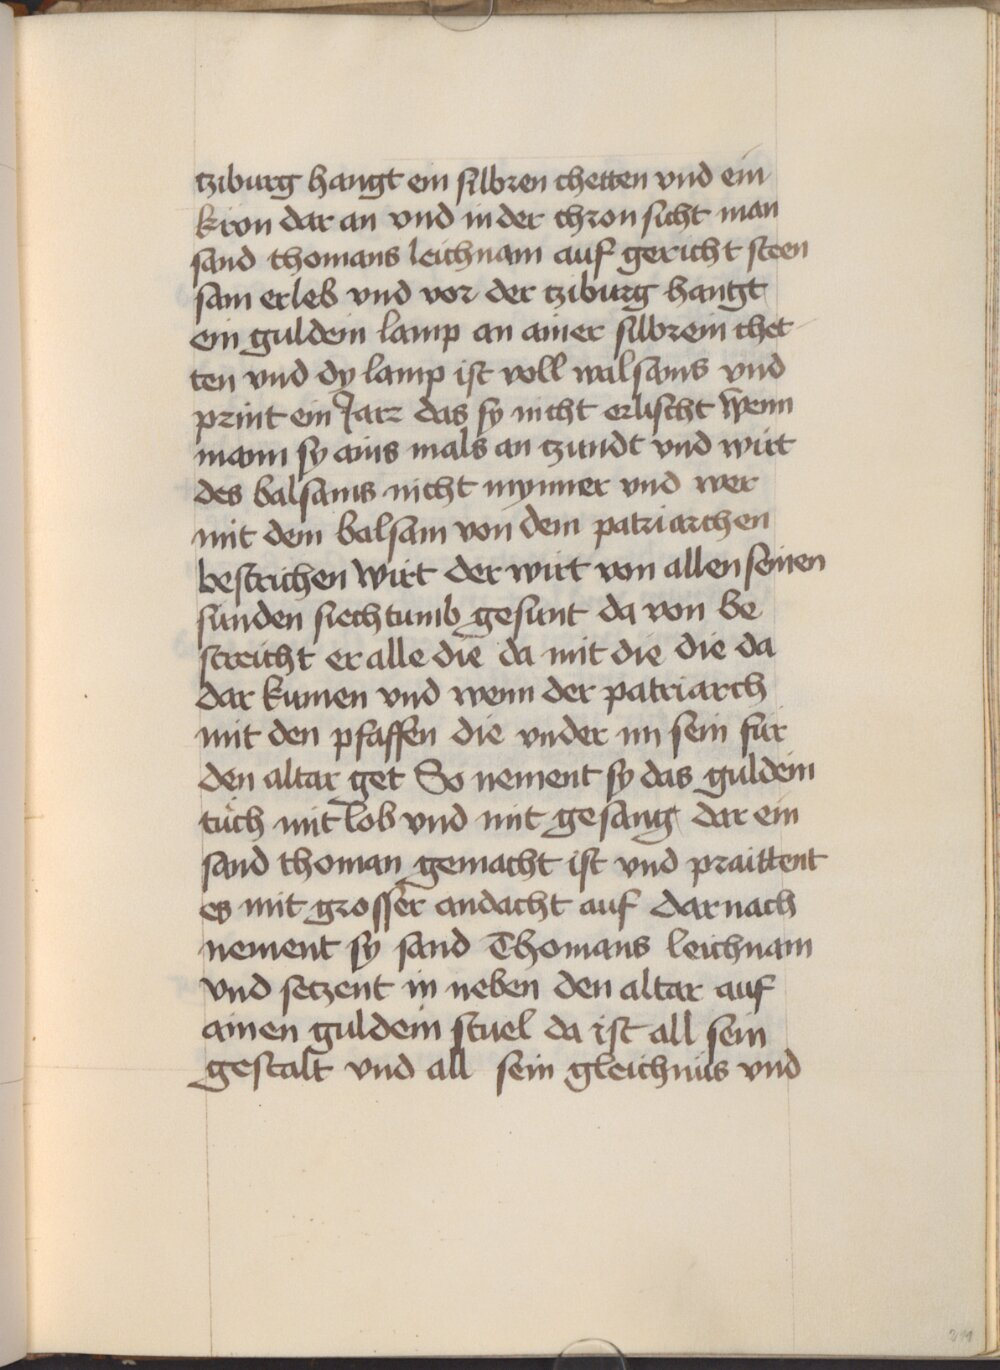 tziburg hangt ein silbren chetten vnd ein
kron dar an vnd in der chron sicht man
sand thomans leichnam auf gericht steen
sam er leb vnd vor der tziburg hangt
ein guldein lamp an ainer silbrein chet-
ten vnd dy lamp ist voll walsams vnd
print ein Jarz das sy nicht erlischt wenn
mann sy ains mals an tzundt vnd wirt
des balsams nicht mynner vnd wer
mit dem balsam von dem patriarchen
bestrichen wirt der wirt von allen seinen
sunden siechtumb gesunt da von be
streicht er alle die da mit die die da
dar kumen vnd wenn der patriarch
mit den pfaffen die vnder im sein fur
den altar get So nement sy das guldein
tuch mit lob vnd mit gesang dar ein
sand thoman gemacht ist vnd praittent
es mit grosser andacht auf dar nach
nement sy sand Thomans leichnam
vnd setzent in neben den altar auf
ainen guldein stuel da ist all sein
gestalt vnd all sein gleichnus vnd